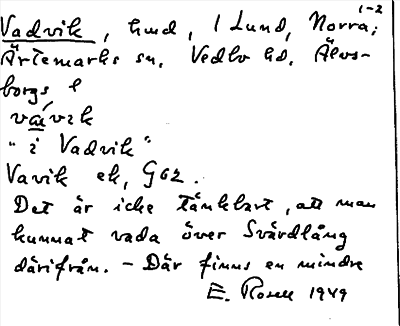 1-2
Vadvik, hmd, 1 Lund, Norra;
Ärtemarks sn, Vedbo hd, Älvs-
borgs l
vavik
"i Vadvik"
Vavik ek, G62.
Det är icke tänkbart, att man
kunnat vada över Svärdlång
därifrån. - Där finns en mindre
E. Rosell 1949